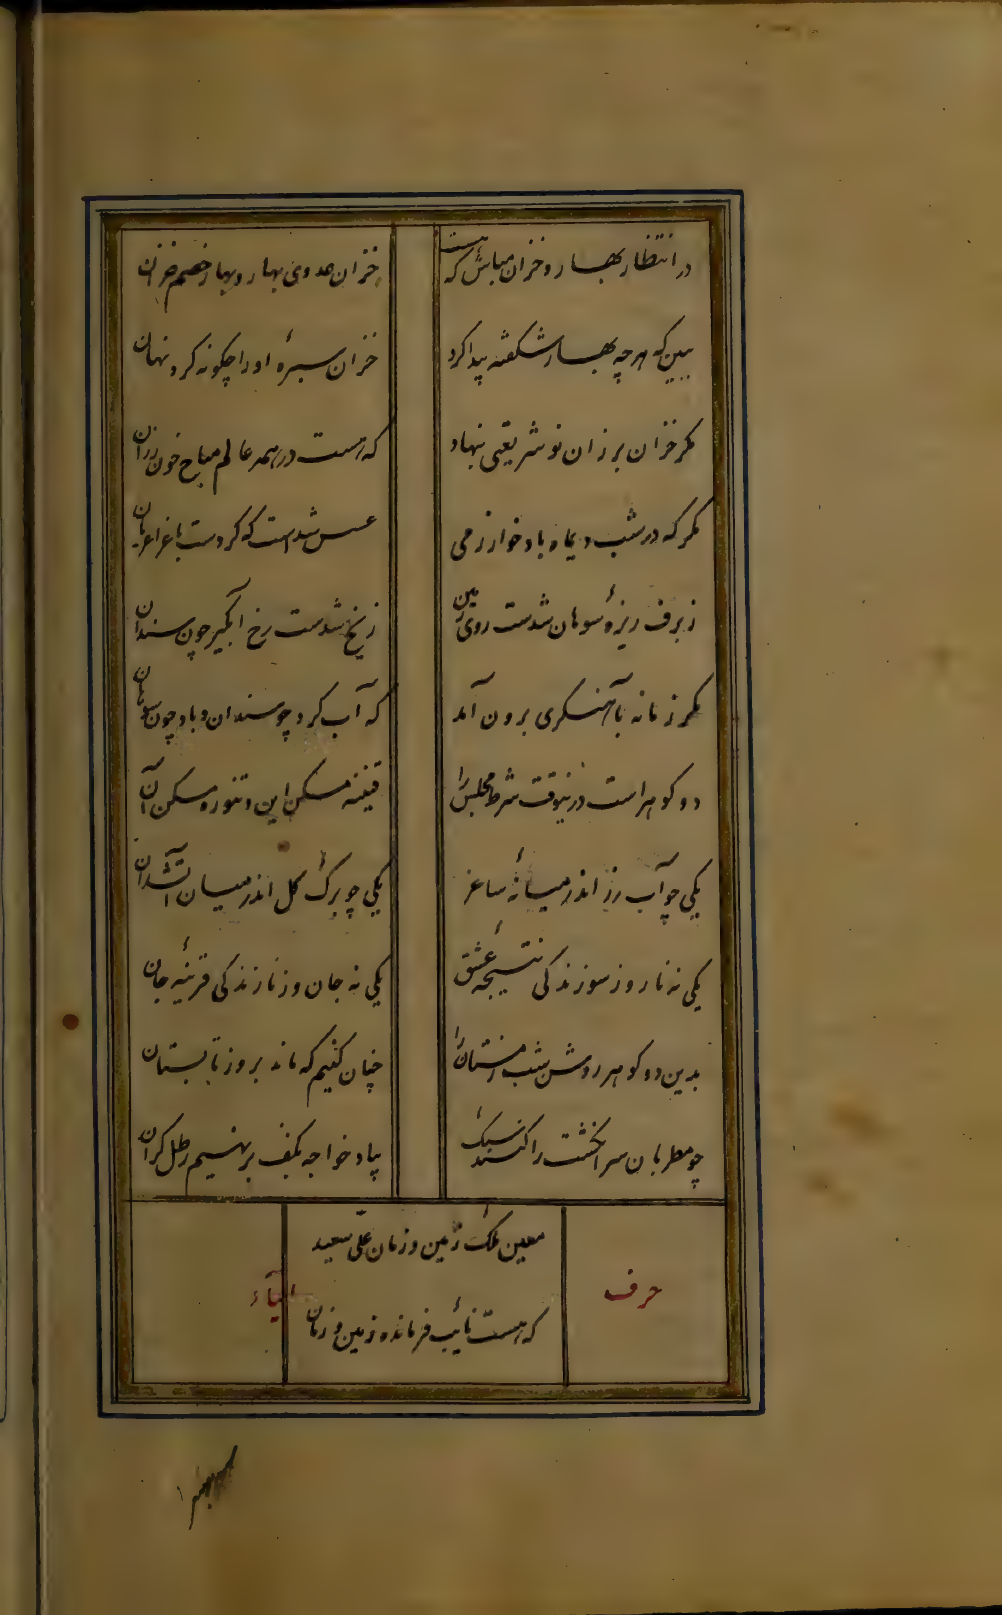 در انتظار بهار و خزان مباش که هست
خزان عدوی بهار و بهار خصم خزان
ببین که هرچه بهار شکفته پیدا کرد
خزان سبزهٔ او را چکونه کرد نهان
مکر خزان بر زان نو شریعتی بنهاد
که هست در همه عالم مباح خون رزان
مکر که در شب دیماه باد خوارزمی
عسس شدست که کردست باغ را عریان
ز برف ریزهٔ سوهان شدست روی زمین
ز یخ شدست رخ آبکیر چون سندان
مکر زمانه بآهنکری برون آمد
که آب کرد چو سندان و باد چون سوهان
دو کوهر است درینوقت شرط مجلس را
قنینه مسکن این و تنوره مسکن آن
یکی چو آب رز اندر میانهٔ ساغر
یکی چو برک کل اندر میان آتشدان
یکی نه نار و ز سوزندکی نتیجهٔ عشق
یکی نه جان و ز نازندکی قرینهٔ جان
بدین دو کوهر روشن شب زمستان را
چنان کنیم که ماند بروز تابستان
چو مطربان سر انکشت را کنند سبک
بیاد خواجه بکف برنهیم رطل کران
معین ملک زمین و زمان علی سعید
که هست نایب فرمانده زمین و زمان
حرف الیآء